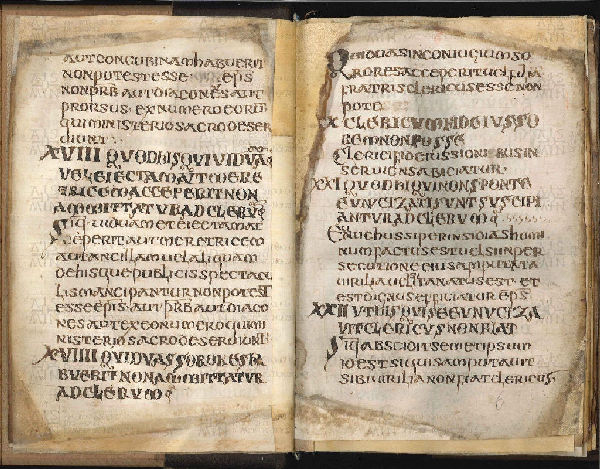 AUT CONCUBINAM HABUERIT
NON POTEST ESSE EPS
NON PRB AUT DIACONES AUT
PRORSUS EX NUMERO EORUM
QUI MINISTERIO SACRO DESER
UIUNT
XVIII QUOD HIS QUI VIDUAM
VEL EIECTAM AUT MERE
TRICEM ACCEPERIT NON
AMMITTATUR AD CLERUM
SIQ UIDUAM ET EIECTAM AC
CEPERIT AUT MERETRICEM
AUT ANCILLAM UEL ALIQUAM
DE HIS QUE PUBLICIS SPECTACU
LIS MANCIPANTUR NON POTEST
ESSE EPIS AUT PRB AUT DIACO
NES AUT EX EO NUMERO QUI MI
NISTERIO SACRO DESERUIUNT
XVIIII QUI DUAS SORORES HA
BUERIT NON AMMITTATUR
AD CLERUM
QUI DUAS IN CONIUGIUM SO
RORES ACCEPERIT UEL FILIA
FRATRIS CLERICUS ESSE NON
POTE
XX CLERICUM FIDEIUSSO
REM NON POSSE
CLERICI FIDEIUSSIONIBUS IN
SERUIENS ABICIATUR
XXI QUOD HI QUI NON SPONTE
EUNUCIZATI SUNT SUSCIPI
ANTUR AD CLERUM
EUNUCHUS SI PER INSIDIAS HOMI
NUM FACTUS EST UEL SI IN PER
SECUTIONE EIUS AMPUTATA
UIRILIA UEL ITA NATUS EST ET
EST DIGNUS EFFICIATUR EPS
XXII UT HIS QUI SE EUNUCIZA
UIT CLERICUS NON FIAT
SIQ ABSCIDIT SEMETIPSUM
ID EST SI QUIS AMPUTAUIT
SIBI UIRILIA NON FIAT CLERICUS